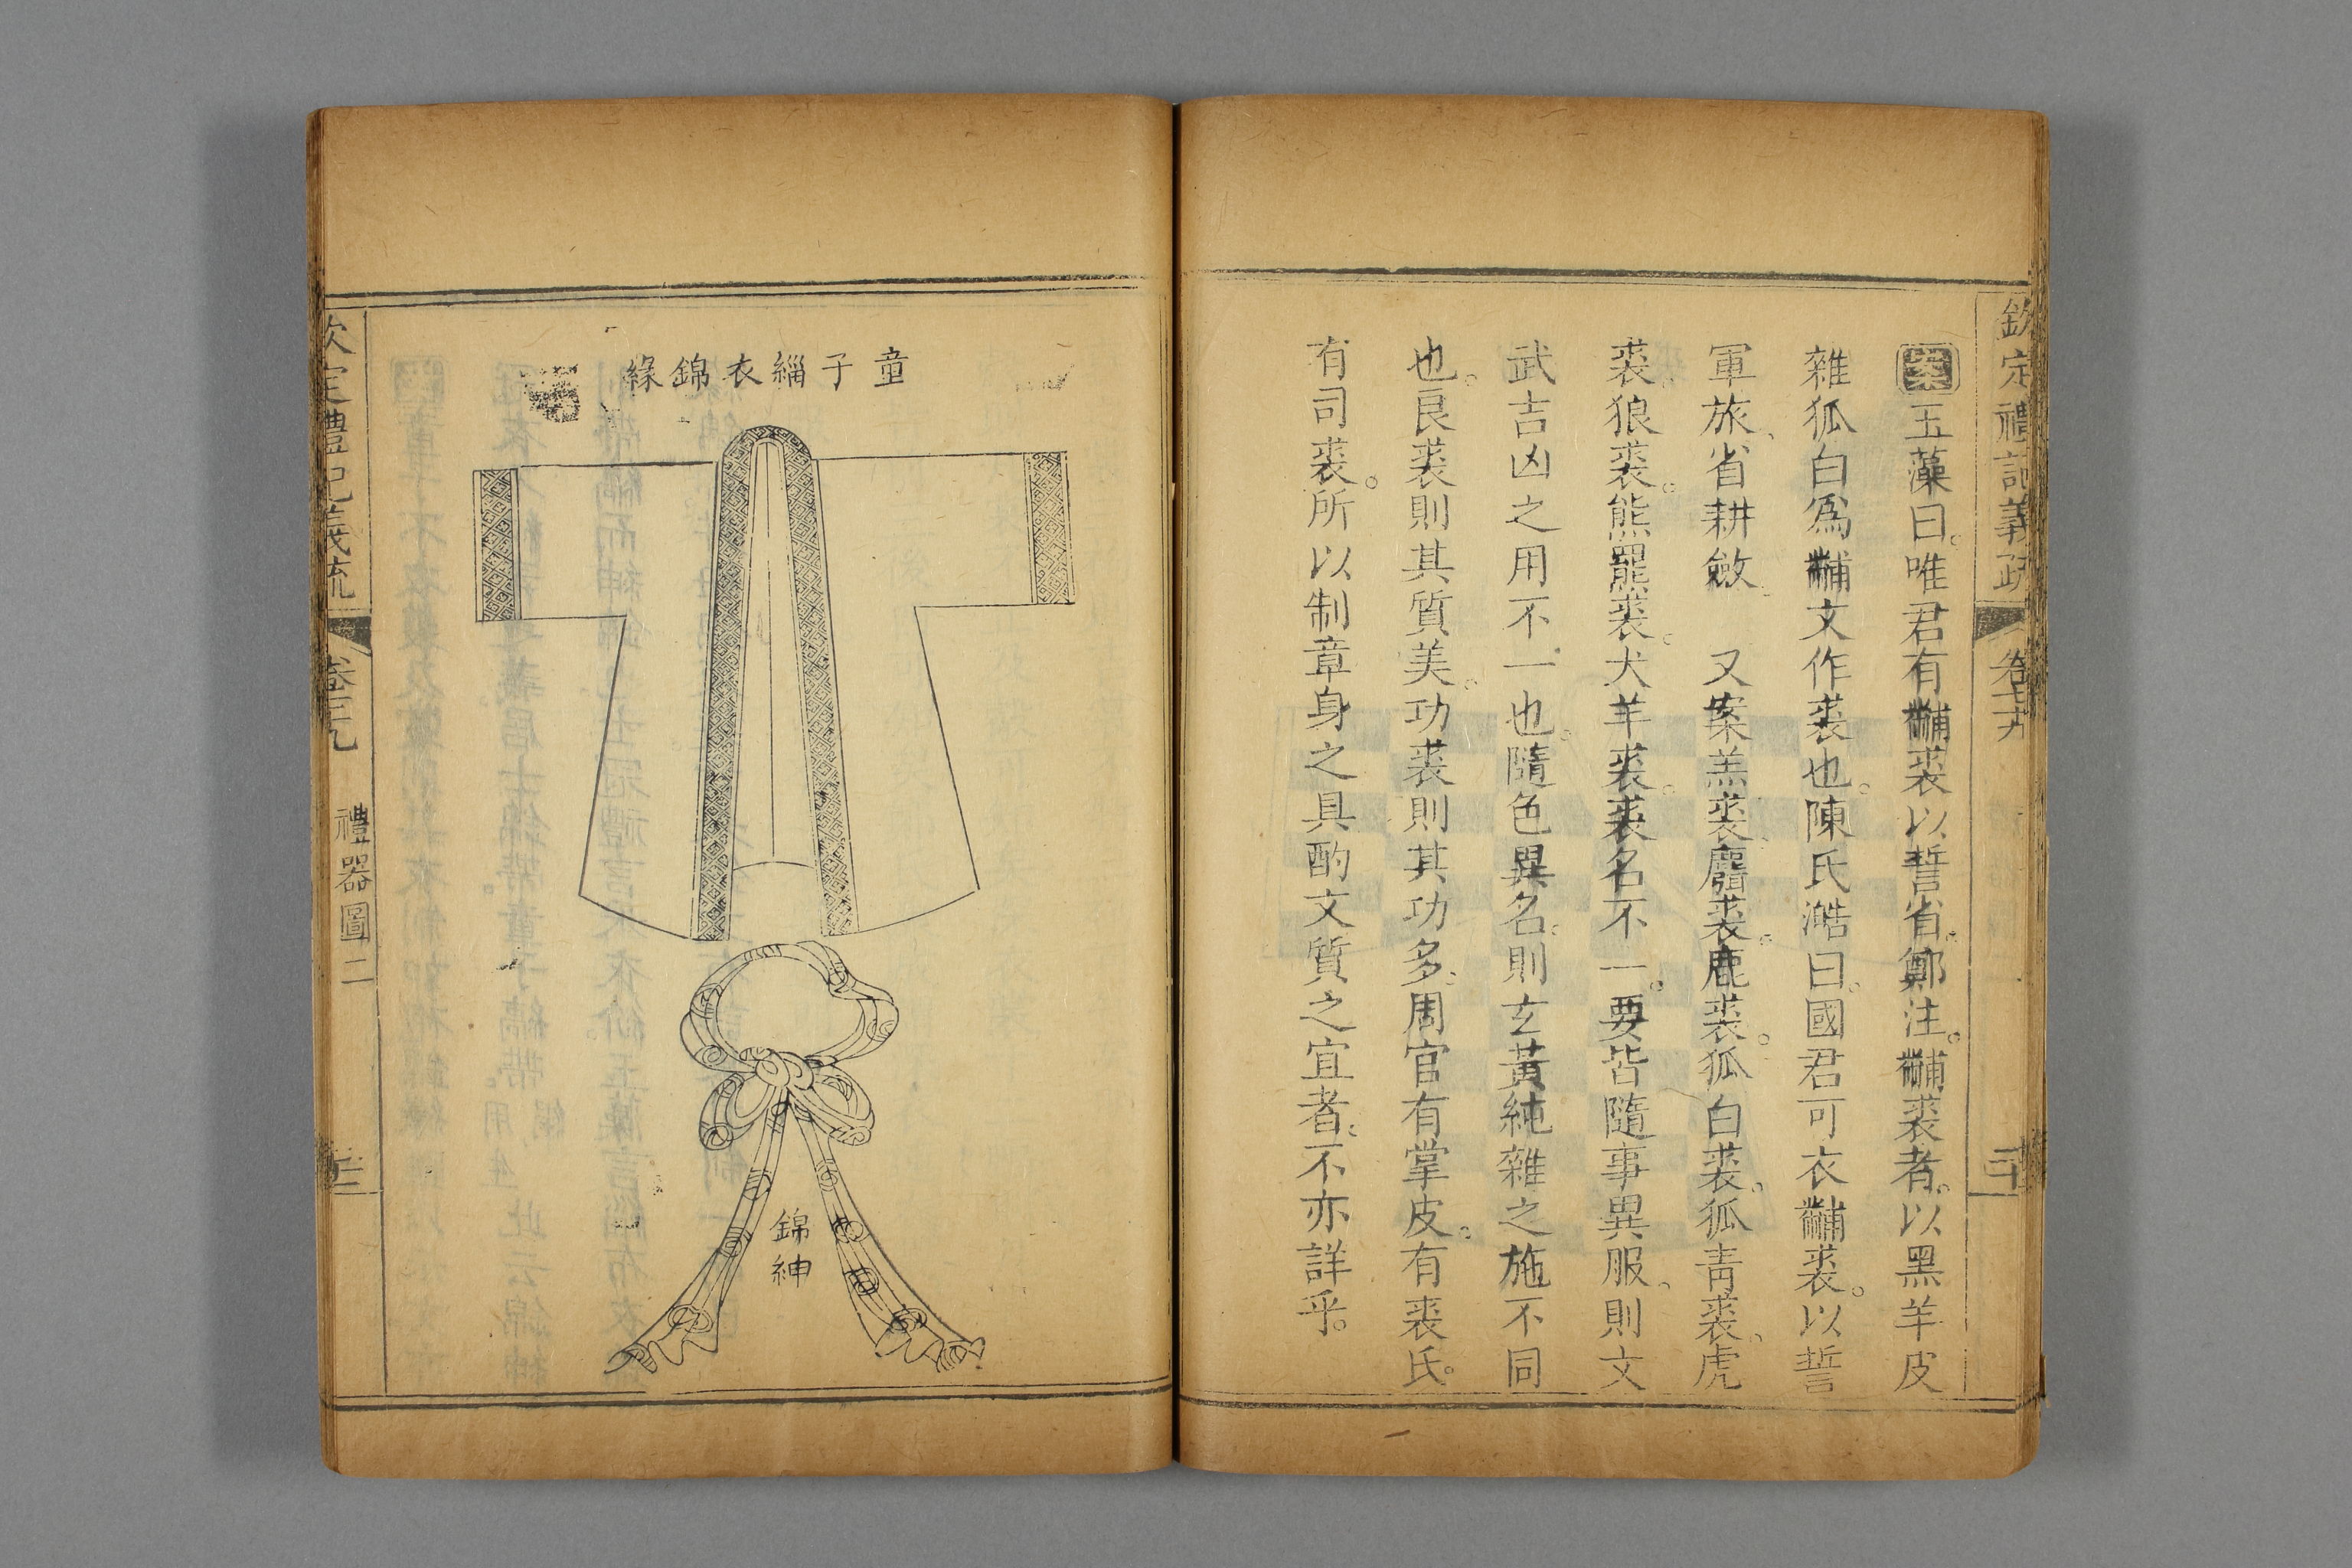 欽定禮記義疏 卷七十九 三十
案 玉藻曰。唯君有黼裘以誓省。鄭注。黼裘者。以黑羊皮
雜狐白爲黼文作裘也。陳氏澔曰。國君可衣黼裘。以誓
軍旅、省耕斂。 又案羔裘、麛裘。鹿裘。狐白裘。狐靑裘、虎
裘。狼裘。熊羆裘。犬羊裘。裘名不一。要皆隨事異服。則文
武吉凶之用不一也。隨色異名。則玄黃純雜之施不同
也。良裘則其質美。功裘則其功多。周官有掌皮。有裘氏。
有司裘。所以制章身之具酌文質之宜者。不亦詳乎。
童子緇衣錦緣
錦紳
欽定禮記義疏 卷 禮器圖二